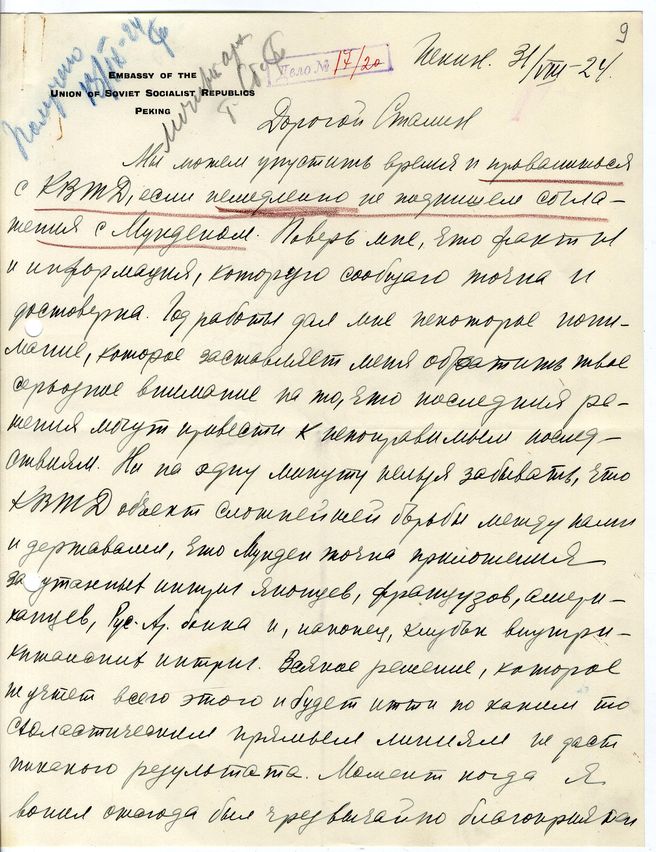 9
Получено
13/IX-24
Личный арх.
Дело № 17/20
Пекин. 31/VIII-24.
EMBASSY OF THE
UNION OF SOVIET SOCIALIST REPUBLICS
PEKING
Дорогой Сталин
Мы можем упустить время и провалиться
с КВЖД, если немедленно не подпишем согла-
шения с Мукденом. Поверь мне, что факты
и информация, которую сообщаю точна и
достоверна. Год работы дал мне некоторое пони-
мание, которое заставляет меня обратить твое
серьозное внимание на то, что последния ре-
шения могут привести к непоправимым послед-
ствиям. Ни на одну минуту нельзя забывать, что
КВЖД объект сложнейшей борьбы между нами
и державами, что Мукден точка приложения
запутанных интриг японцев, французов, амери-
канцев, Рус.-Аз. банка и, наконец, клубок внутри-
китайских интриг. Всякое решение, которое
не учтет всего этого и будет итти по каким то
схоластическим прямым линиям не даст
никакого результата. Момент когда я
вошел сюда был чрезвычайно благоприятен